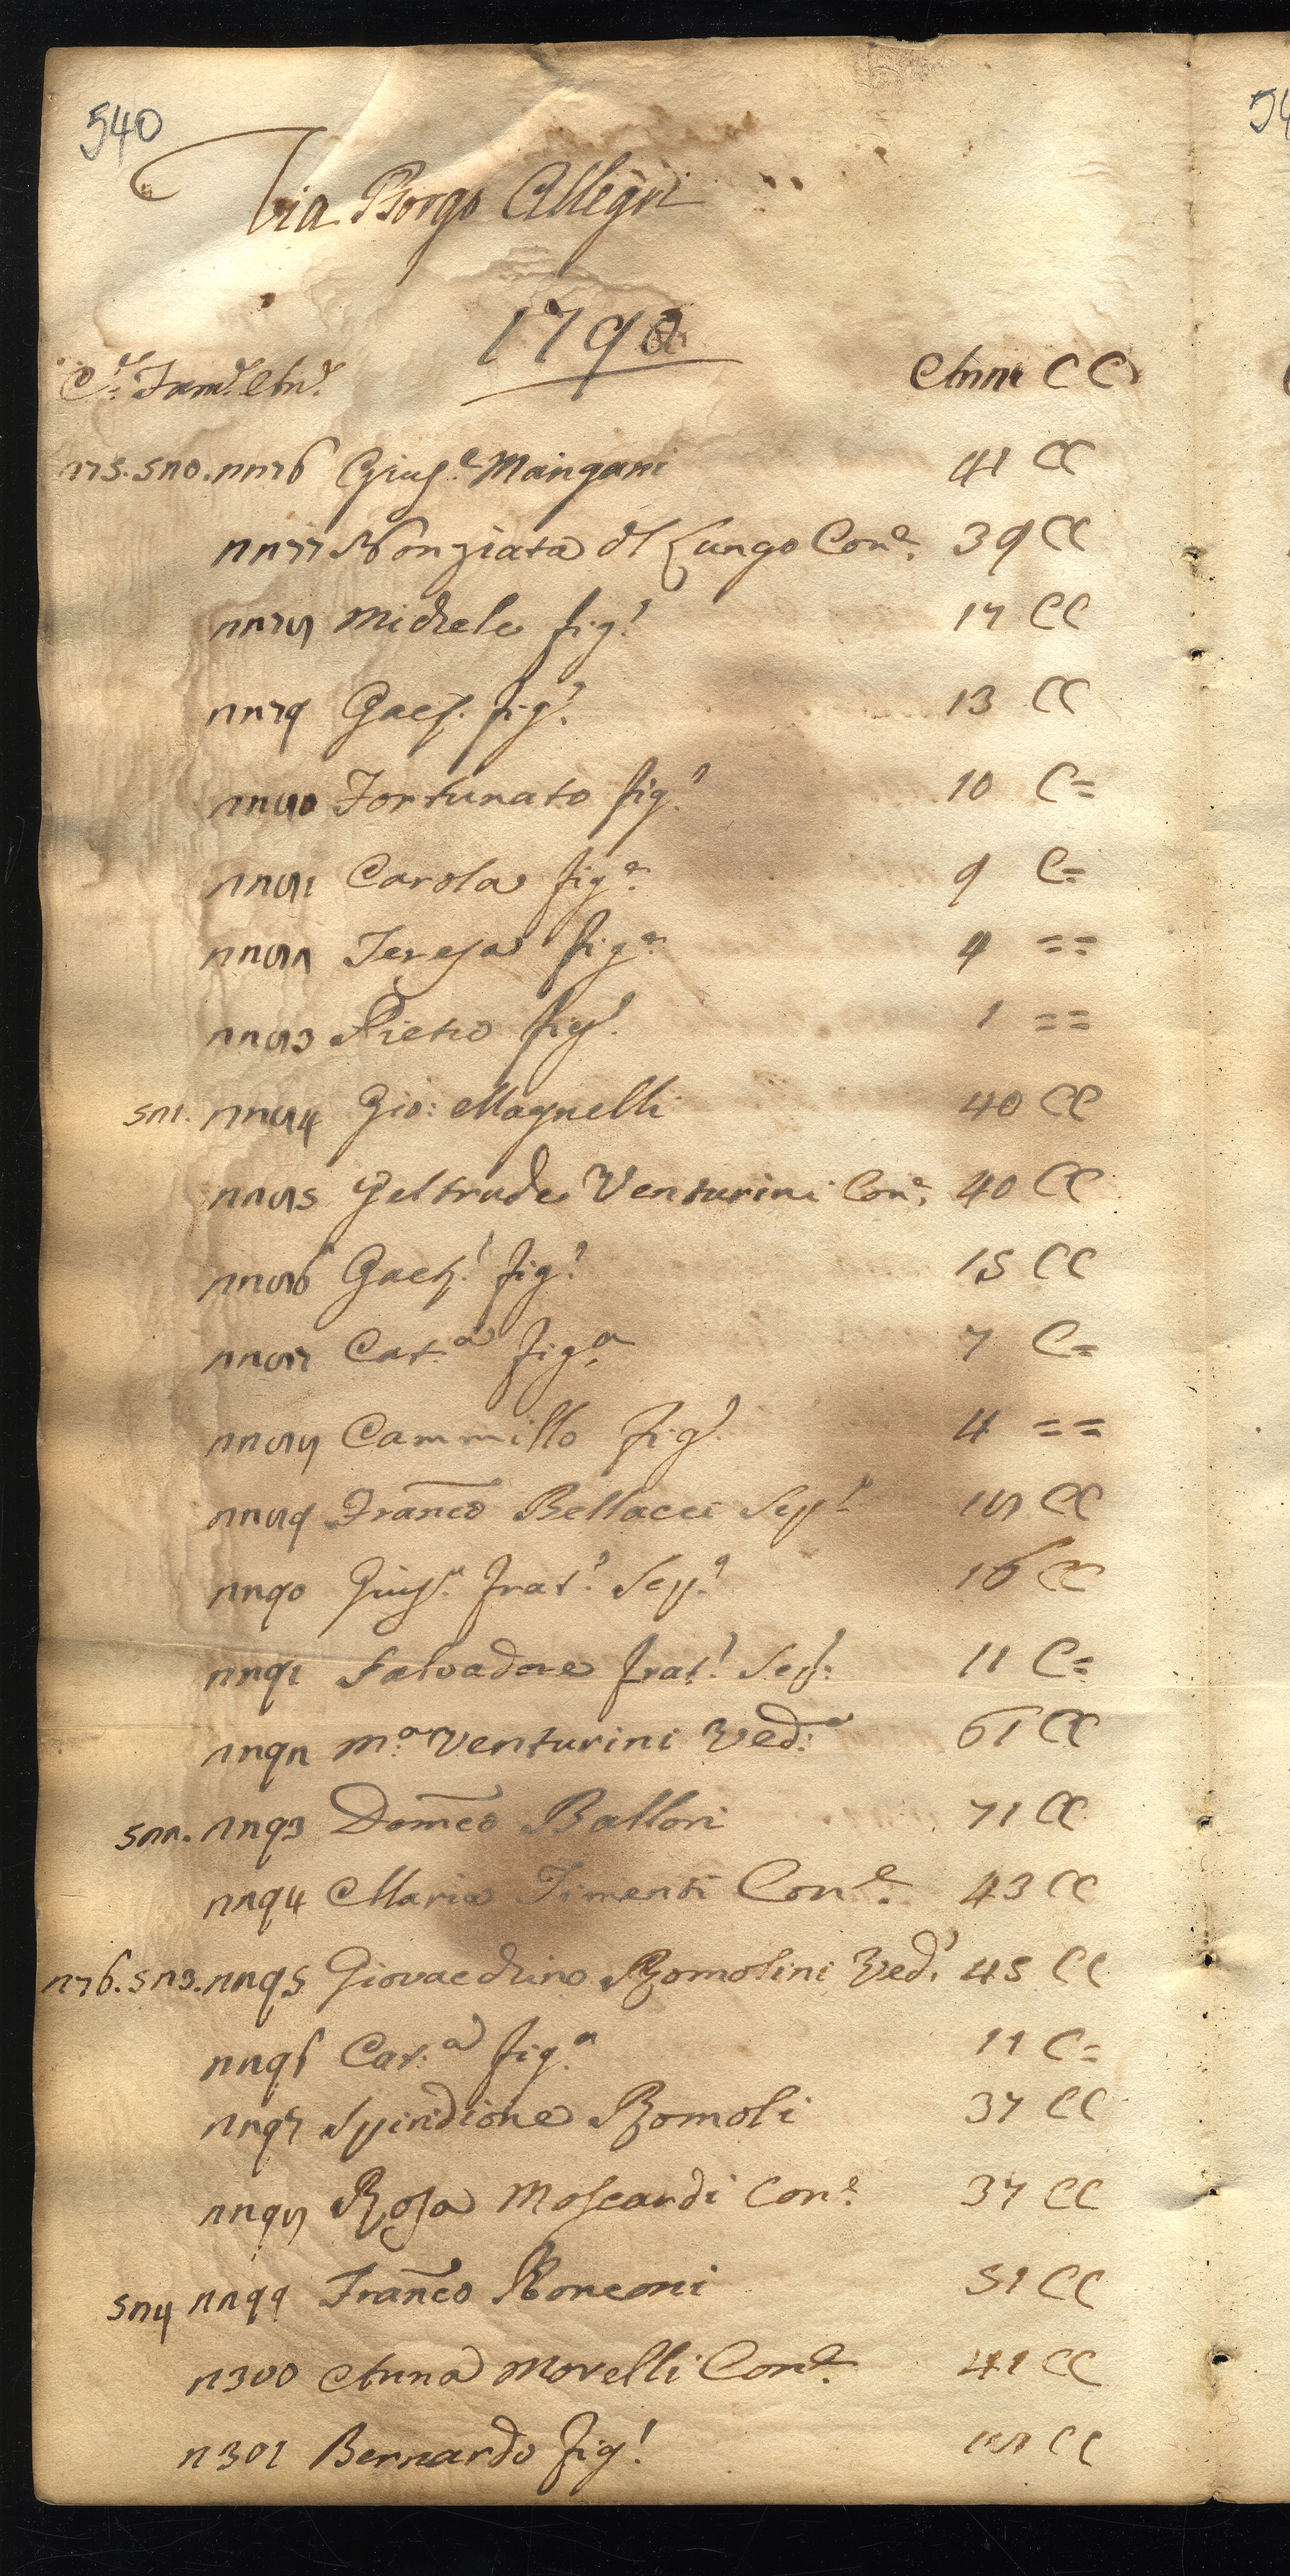 540
Via Borgo Allegri
1790
C.e Fam.e An.e Anni C C
275. 520. 2276 Gius.e Mangani 41 CC
2277 Nonziata dl Lungo Con.e 39 CC
2278 Michele fig.o 17 CC
2279 Gaet. fig.o 13 CC
2280 Fortunato fig.o 10 C=
2281 Carola fig.a 9 C=
2282 Teresa fig.a 4 ==
2283 Pietro fig.o 1 ==
521. 2284 Gio: Magnelli 40 CC
2285 Geltrude Venturini Con.e 40 CC
2286 Gaet.o fig.o 15 CC
2287 Cat.a fig.a 7 C=
2288 Cammillo fig.o 4 ==
2289 Franco Bellacci Sepp.e 18 CC
2290 Gius.e frat.o Sep.e 16 CC
2291 Salvadore frat.o Sep: 11 C=
2292 M.a Venturini Ved.a 61 CC
522. 2293 Domco Ballori 71 CC
2294 Maria Timenti Con.e 43 CC
276. 523. 2295 Giovacchino Romolini Ved.o 45 CC
2296 Cat.a fig.a 11 C=
2297 Spiridione Romoli 37 CC
2298 Rosa Moscardi Con.e 37 CC
524 2299 Franco Ronconi 51 CC
2300 Anna Morelli Con.e 41 CC
2301 Bernardo fig.o 18 CC